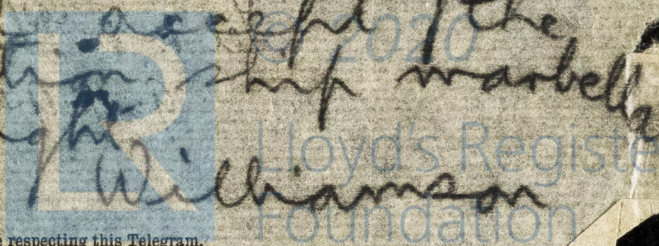 accept the
ship marbella
Williamson
respecting this Telegram.
LR
© 2020
Lloyd's Registe
Foundation